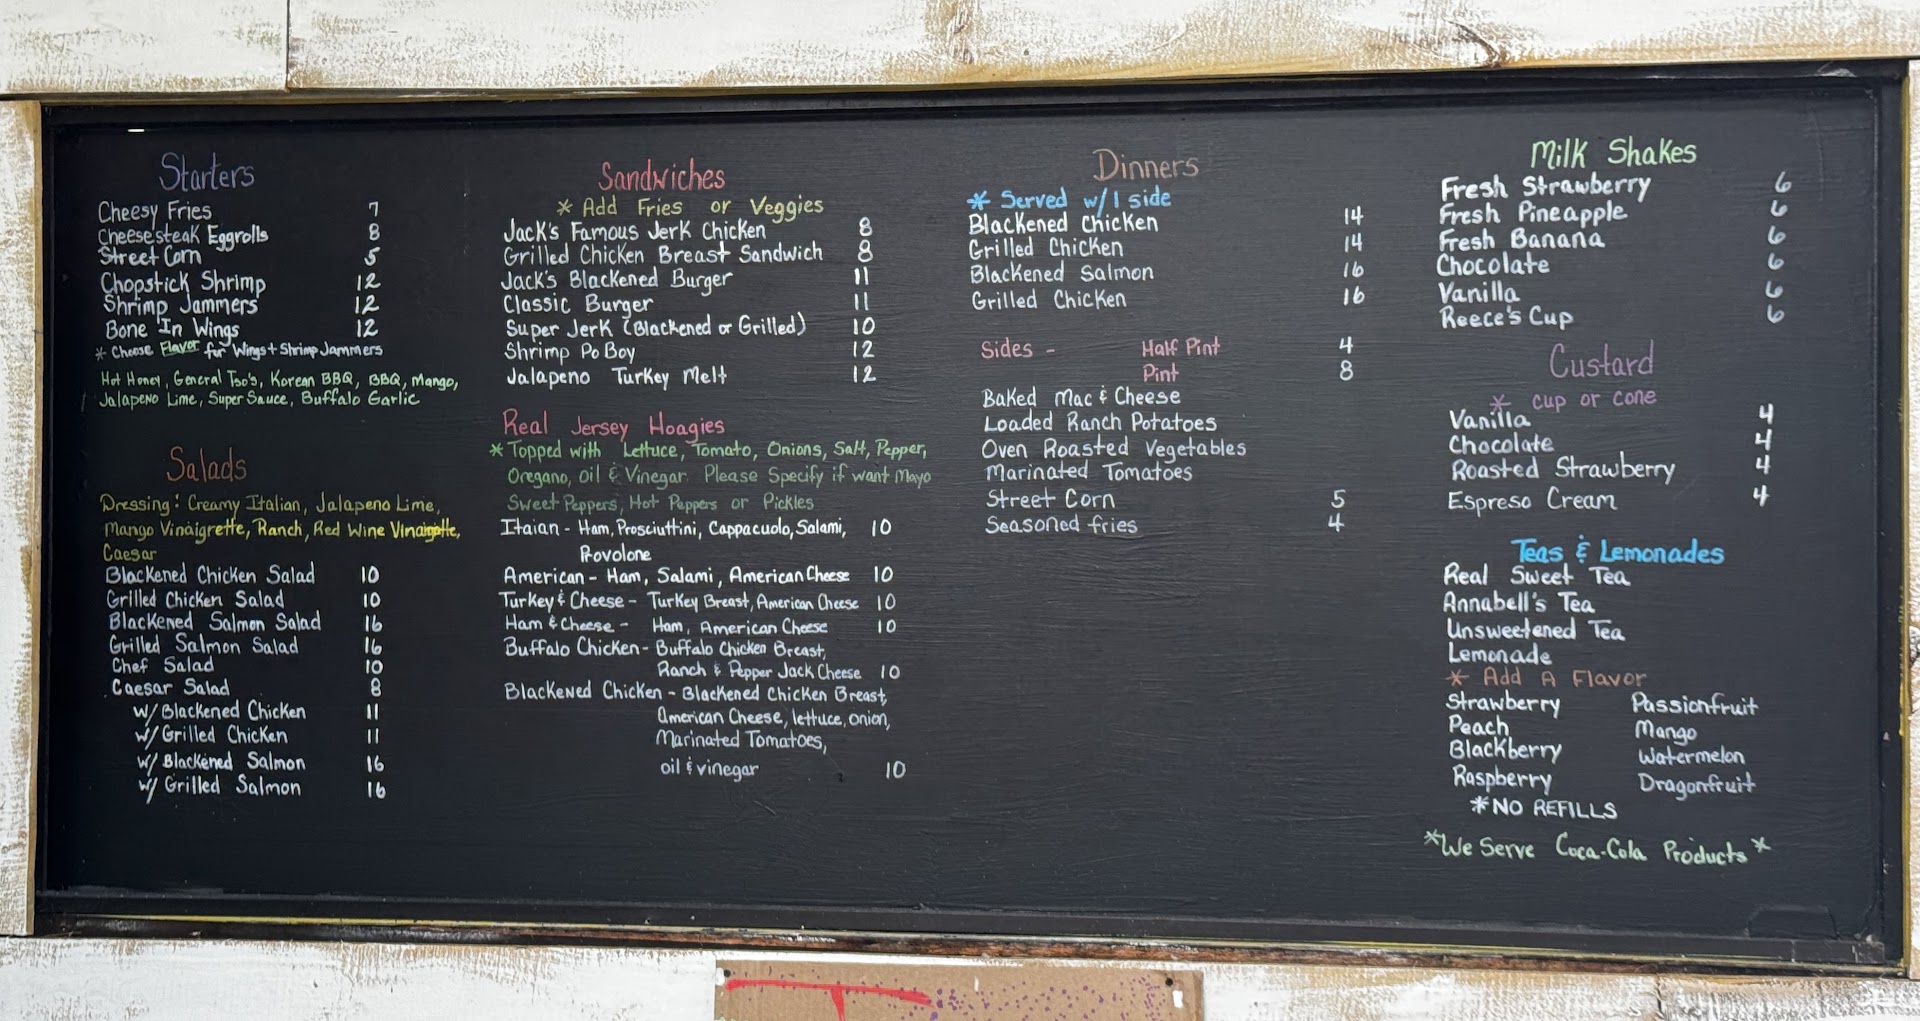 Starters
Cheesy Fries 7
Cheesesteak Eggrolls 8
Street Corn 5
Chopstick Shrimp 12
Shrimp Jammers 12
Bone In Wings 12
* Choose Flavor for Wings + Shrimp Jammers
Hot Honey, General Tso's, Korean BBQ, BBQ, Mango,
Jalapeno Lime, Super Sauce, Buffalo Garlic
Salads
Dressing: Creamy Italian, Jalapeno Lime,
Mango Vinaigrette, Ranch, Red Wine Vinaigrette,
Caesar
Blackened Chicken Salad 10
Grilled Chicken Salad 10
Blackened Salmon Salad 16
Grilled Salmon Salad 16
Chef Salad 10
Caesar Salad 8
w/ Blackened Chicken 11
w/ Grilled Chicken 11
w/ Blackened Salmon 16
w/ Grilled Salmon 16
Sandwiches
* Add Fries or Veggies
Jack's Famous Jerk Chicken 8
Grilled Chicken Breast Sandwich 8
Jack's Blackened Burger 11
Classic Burger 11
Super Jerk (Blackened or Grilled) 10
Shrimp Po Boy 12
Jalapeno Turkey Melt 12
Real Jersey Hoagies
* Topped with Lettuce, Tomato, Onions, Salt, Pepper,
Oregano, Oil & Vinegar. Please Specify if want Mayo
Sweet Peppers, Hot Peppers or Pickles
Itaian - Ham, Prosciuttini, Cappacuolo, Salami, 10
Provolone
American - Ham, Salami, American Cheese 10
Turkey & Cheese - Turkey Breast, American Cheese 10
Ham & Cheese - Ham, American Cheese 10
Buffalo Chicken - Buffalo Chicken Breast,
Ranch & Pepper Jack Cheese 10
Blackened Chicken - Blackened Chicken Breast,
American Cheese, lettuce, onion,
Marinated Tomatoes,
oil & vinegar 10
Dinners
* Served w/ 1 side
Blackened Chicken 14
Grilled Chicken 14
Blackened Salmon 16
Grilled Chicken 16
Sides - Half Pint 4
Pint 8
Baked Mac & Cheese
Loaded Ranch Potatoes
Oven Roasted Vegetables
Marinated Tomatoes
Street Corn 5
Seasoned fries 4
Milk Shakes
Fresh Strawberry 6
Fresh Pineapple 6
Fresh Banana 6
Chocolate 6
Vanilla 6
Reece's Cup 6
Custard
* cup or cone
Vanilla 4
Chocolate 4
Roasted Strawberry 4
Espreso Cream 4
Teas & Lemonades
Real Sweet Tea
Annabell's Tea
Unsweetened Tea
Lemonade
* Add A Flavor
Strawberry Passionfruit
Peach Mango
Blackberry Watermelon
Raspberry Dragonfruit
*NO REFILLS
*We Serve Coca-Cola Products*